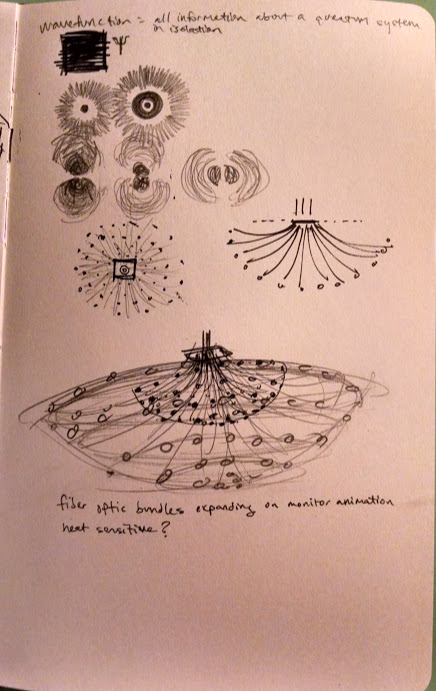 wavefunction = all information about a quantum system
in isolation
Ψ
fiber optic bundles expanding on monitor animation
heat sensitive?